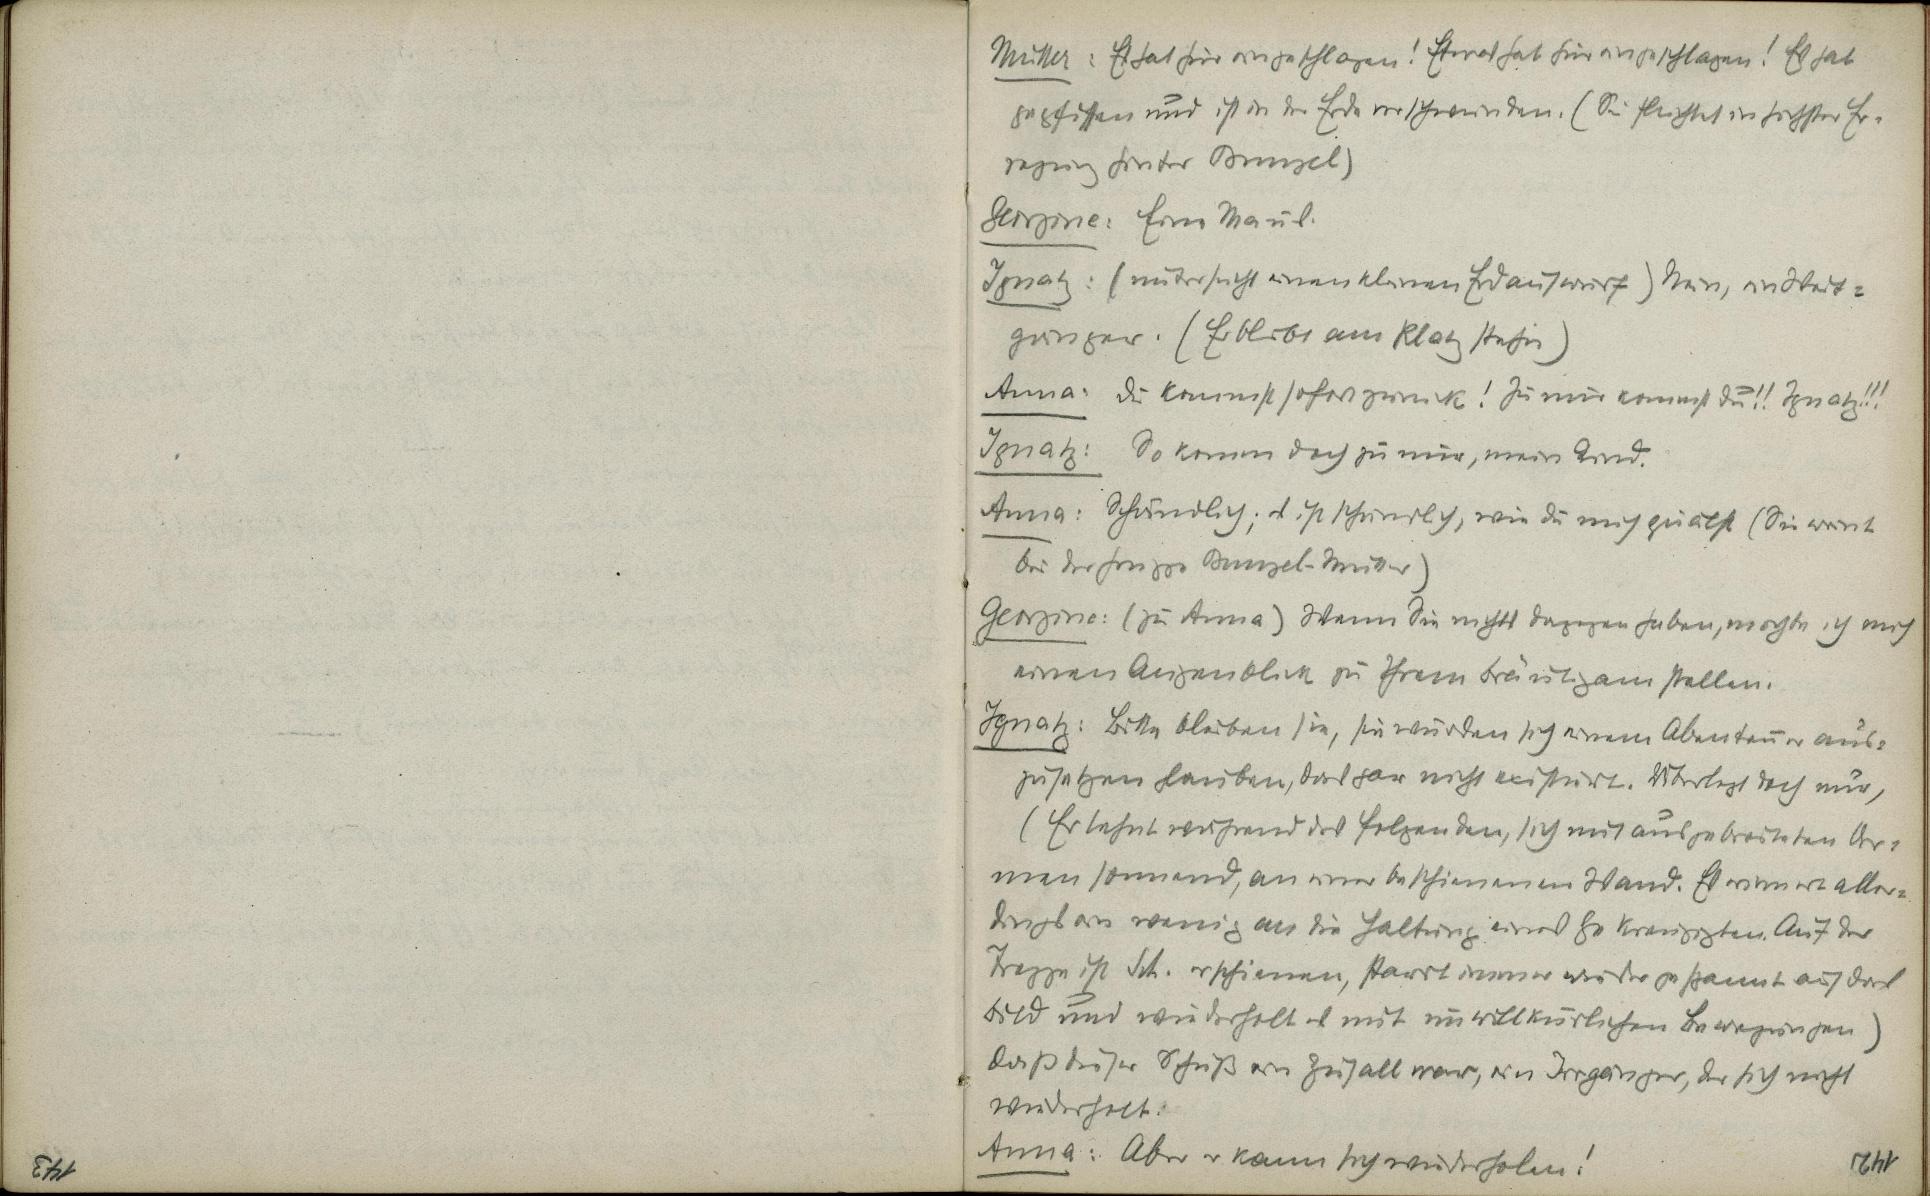 Mutter: Es hat hier eingeschlagen! Etwas hat hier eingeschlagen! Es hat
gepfiffen und ist in der Erde verschwunden. (Sie flüchtet in höchster Er-
regung hinter Bunzel)
Georgine: Eine Maus.
Ignatz: (untersucht einen kleinen Erdauswurf) Nein, ein Weit-
gänger. (Er bleibt am Platz stehn)
Anna: Du kommst sofort zurück! Zu mir kommst du!! Ignatz!!!
Ignatz: So komm doch zu mir, mein Kind.
Anna: Schändlich; es ist schändlich, wie du mich quälst (Sie weint
bei der Gruppe Bunzel-Mutter)
Georgine: (zu Anna) Wenn Sie nichts dagegen haben, möchte ich mich
einen Augenblick zu Ihrem Bräutigam stellen.
Ignatz: Bitte bleiben sie, sie würden sich einem Abenteuer aus-
zusetzen glauben, das gar nicht existiert. Überlegt doch nur,
(Er lehnt während des folgenden, sich mit ausgebreiteten Ar-
men sonnend, an einer beschienenen Wand. Es erinnert aller-
dings ein wenig an die Haltung eines Gekreuzigten. Auf der
Treppe ist Sch. erschienen, starrt immer wieder gespannt auf das
Bild und wiederholt es mit unwillkürlichen Bewegungen)
dass dieser Schuß ein Zufall war, ein Irrgänger, der sich nicht
wiederholt.
Anna: Aber er kann sich wiederholen!
142
143